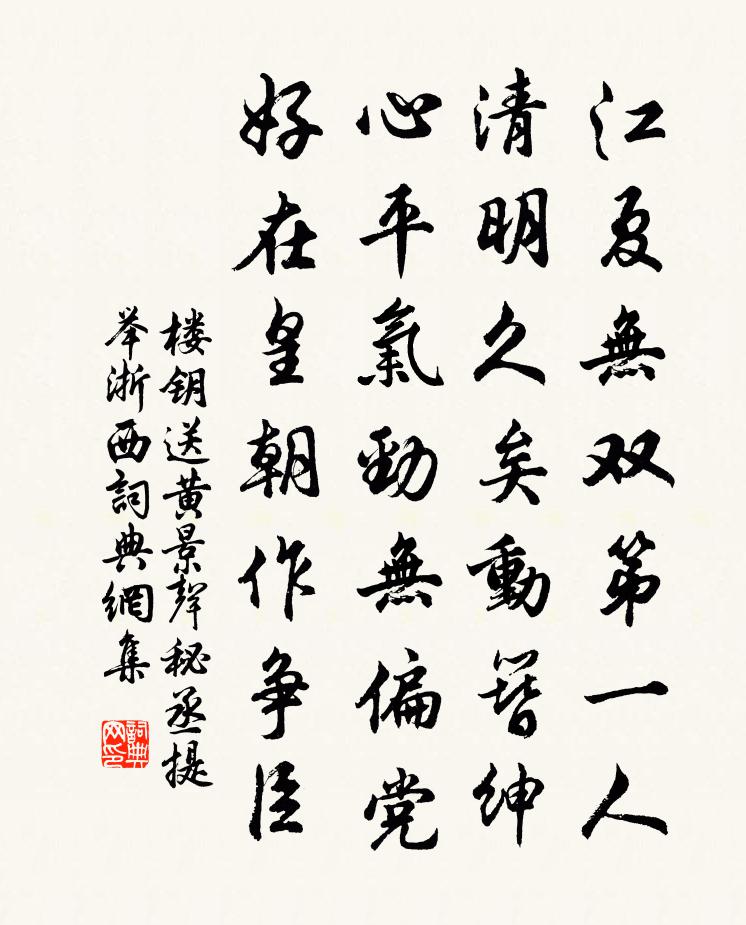 江夏無双第一人
清明久矣動簪紳
心平氣勁無偏党
好在皇朝作争臣
楼钥送黄景聲秘丞提
举浙西詞典網集
詞典网印